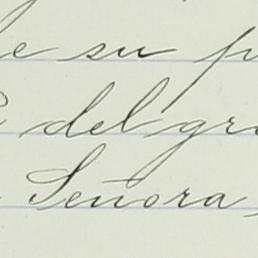 e su p
del gra
Señora,